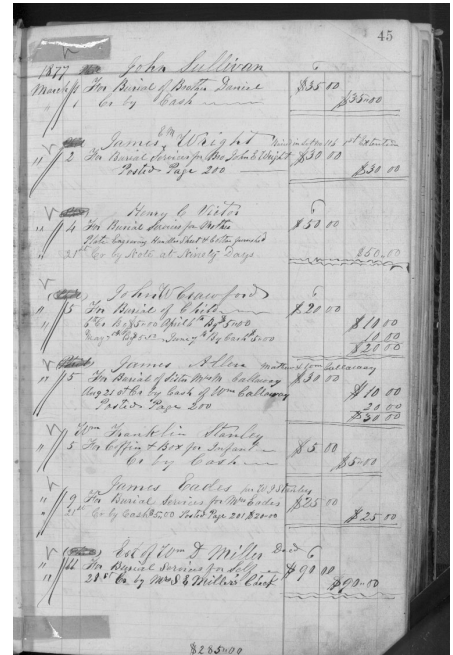 45
1877 John Sullivan
March 1 For Burial of Brother Daniel $35.00
1 Cr by Cash $35.00
James M Wright
" 2 For Burial Services for Bro John E Wright $30 00
Posted Page 200 $30 00
Henry C Victor
" 4 For Burial Services for Mother $50 00
Plate Engraving Handles Shawl & Cotton furnished
" 21st Cr by Note at Ninety Days $50.00
John W Crawford
" 5 For Burial of Child $20 00
$10 00
10 00
$20 00
James Allen Mother of Wm Callaway
" 5 For Burial of Sister Mrs M Callaway $30 00
Aug 25st Cr by Cash of Wm Callaway $10 00
Posted Page 200 20 00
$30 00
Wm Franklin Stanley
" 5 For Coffin & Box for Infant $5 00
Cr by Cash $5.00
James Eades per W J Stanley
" 9 For Burial Services for Mrs Eades $25 00
" 21st Cr by Cash $5.00 Posted Page 201 $20.00 $25 00
Est of Wm D Miller Decd
" 11 For Burial Services for Self $90 00
" 20st Cr by Mrs S E Miller's Check $90.00
$285.00